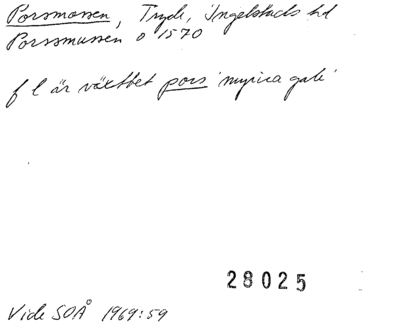 Porsmossen, Tryde, Ingelstads hd
Porssmussen o 1570
f l är växtbet pors 'myrica gale'
28025
Vide SOÅ 1969:59